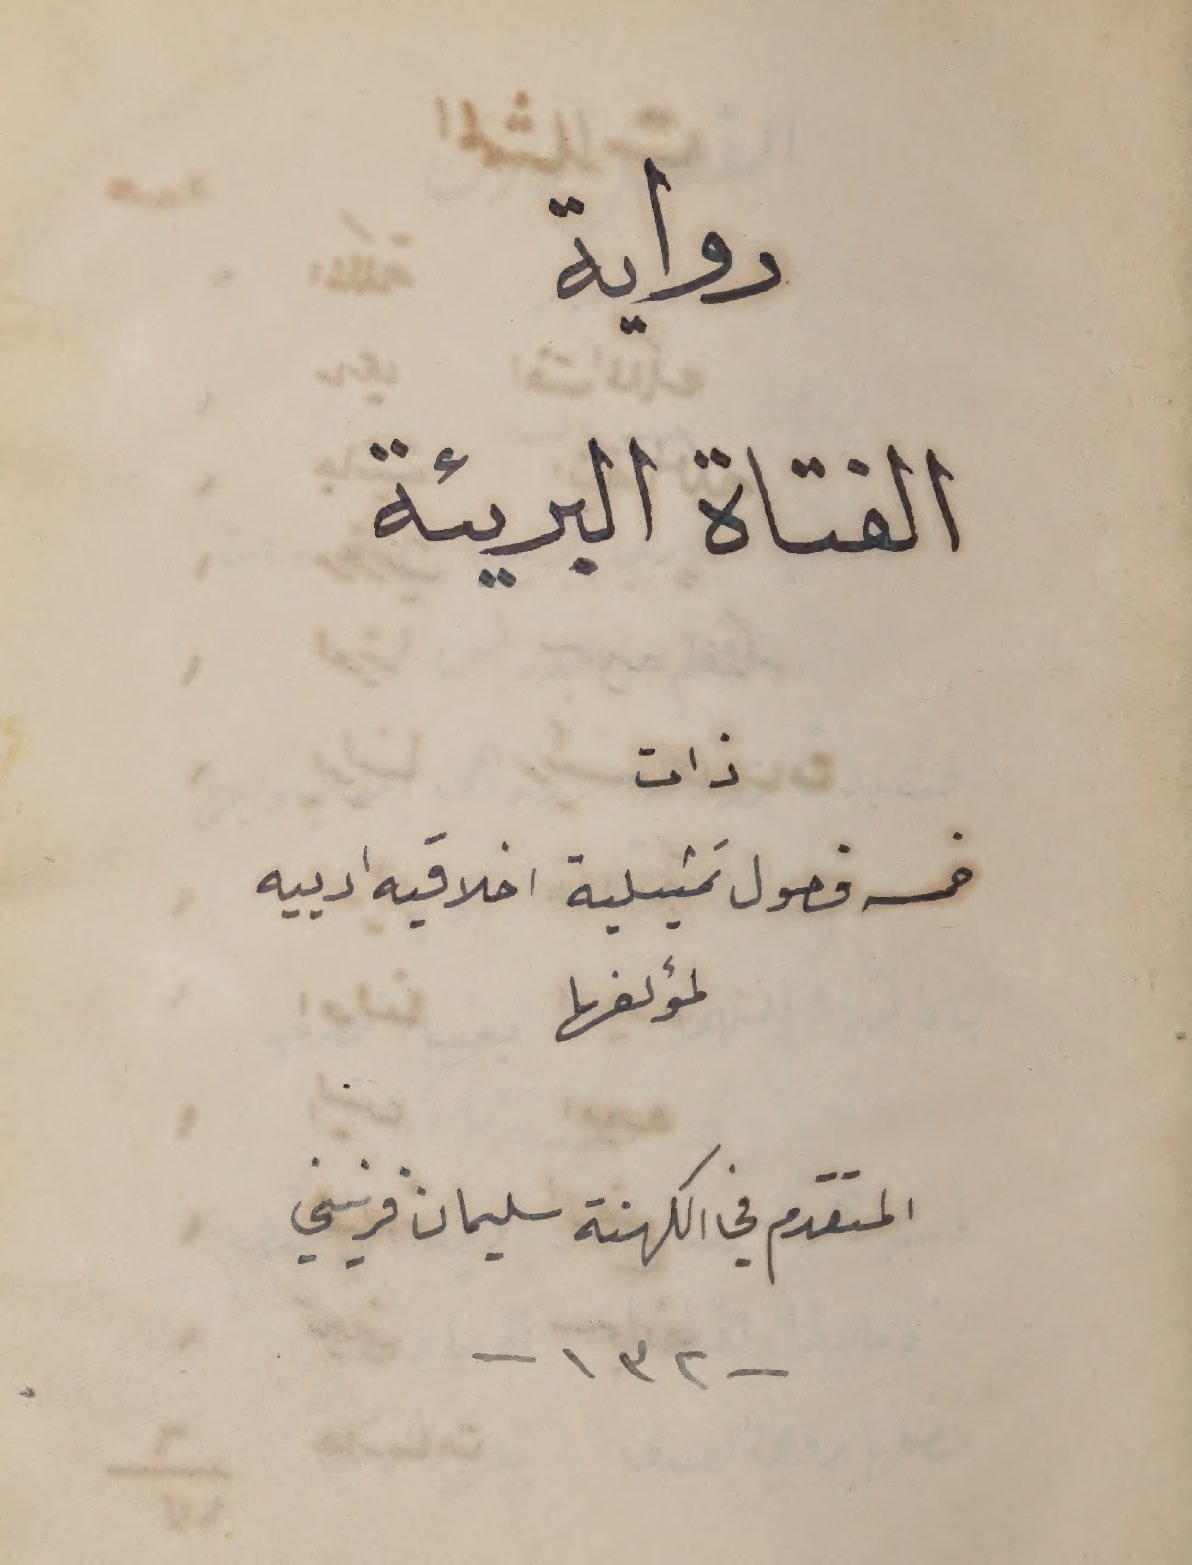 رواية
الفتاة البريئة
ذات
خمسه فصول تمثيلية اخلاقيه ادبيه
لمؤلفها
المتقدم في الكهنة سليمان فرنيني
- ١٣٢ -